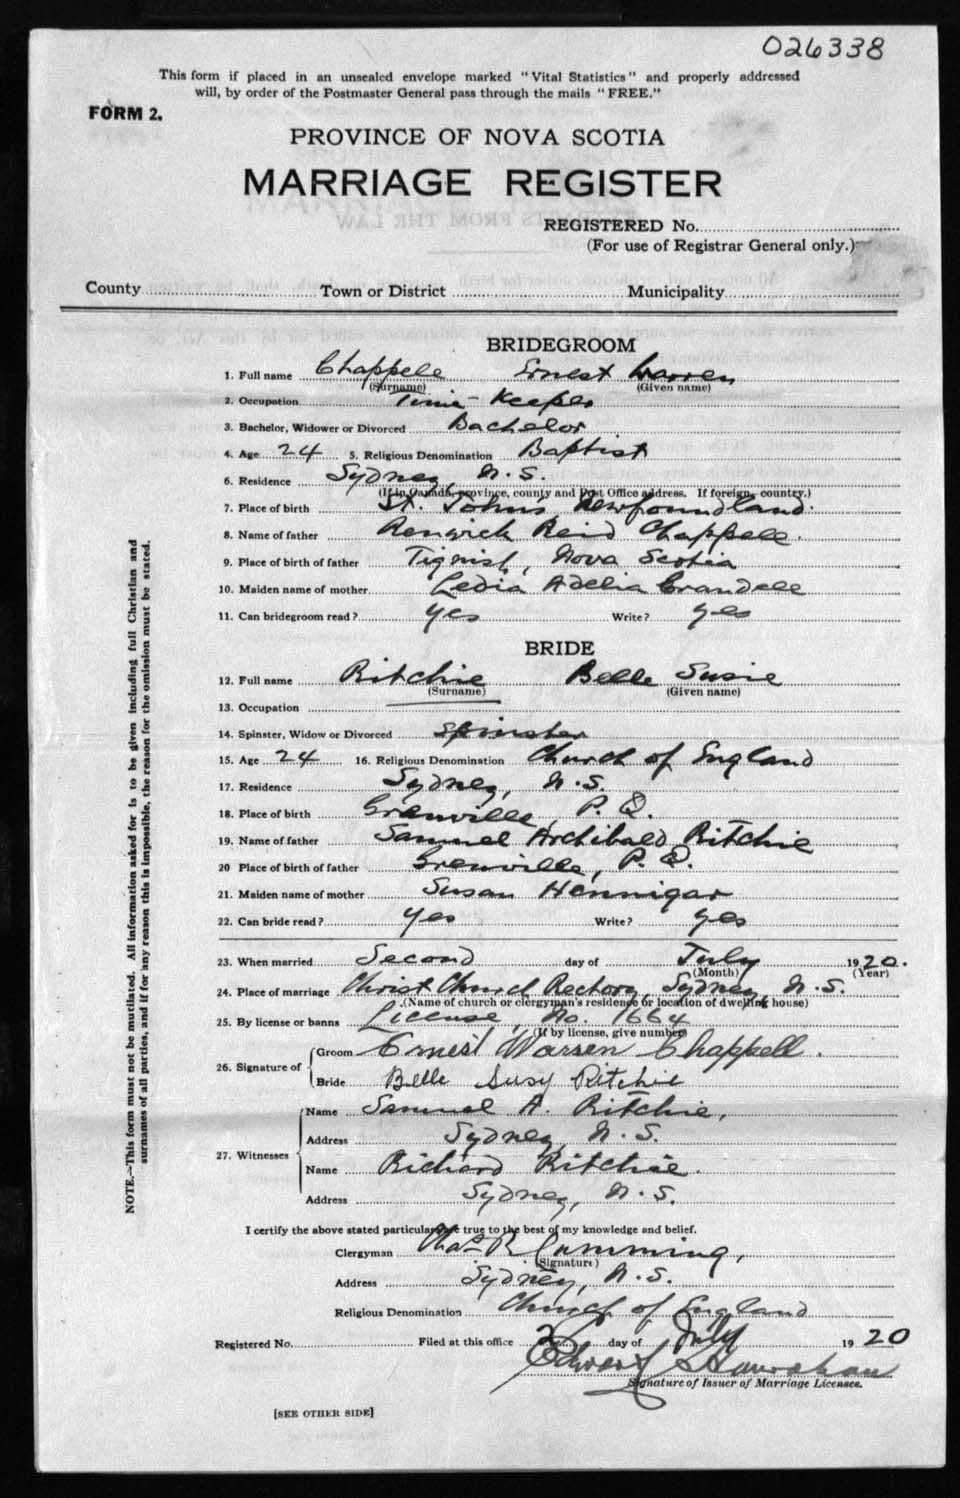 026338
This form if placed in an unsealed envelope marked "Vital Statistics" and properly addressed
will, by order of the Postmaster General pass through the mails "FREE."
FORM 2.
PROVINCE OF NOVA SCOTIA
MARRIAGE REGISTER
REGISTERED No.
(For use of Registrar General only.)
County Town or District Municipality
BRIDEGROOM
1. Full name Chappele Ernest Warren
(Surname) (Given name)
2. Occupation Time-Keeper
3. Bachelor, Widower or Divorced Bachelor
4. Age 24 5. Religious Denomination Baptist
6. Residence Sydney, N.S.
(If in Canada, province, county and Post Office address. If foreign, country.)
7. Place of birth St. Johns Newfoundland.
8. Name of father Renwick Reid Chappele.
9. Place of birth of father Tignish, Nova Scotia
10. Maiden name of mother Ledia Adelia Crandell
11. Can bridegroom read? yes Write? yes
BRIDE
12. Full name Ritchie Belle Susie
(Surname) (Given name)
13. Occupation
14. Spinster, Widow or Divorced Spinster
15. Age 24 16. Religious Denomination Church of England
17. Residence Sydney, N.S.
18. Place of birth Grenville, P.Q.
19. Name of father Samuel Archibald Ritchie
20 Place of birth of father Grenville, P.Q.
21. Maiden name of mother Susan Hennigar
22. Can bride read? yes Write? yes
23. When married Second day of July 1920.
(Month) (Year)
24. Place of marriage Christ Church Rectory, Sydney, N.S.
(Name of church or clergyman's residence or location of dwelling house)
25. By license or banns License, No. 1664
(If by license, give number)
26. Signature of Groom Ernest Warren Chappell.
Bride Belle Susy Ritchie
27. Witnesses Name Samuel A. Ritchie,
Address Sydney, N.S.
Name Richard Ritchie.
Address Sydney, N.S.
I certify the above stated particulars are true to the best of my knowledge and belief.
Clergyman Chas R Cumming,
(Signature)
Address Sydney, N.S.
Religious Denomination Church of England
Registered No. Filed at this office 2 day of July 1920
Edward
Signature of Issuer of Marriage Licenses.
[SEE OTHER SIDE]
NOTE.—This form must not be mutilated. All information asked for is to be given including full Christian and
surnames of all parties, and if for any reason this is impossible, the reason for the omission must be stated.